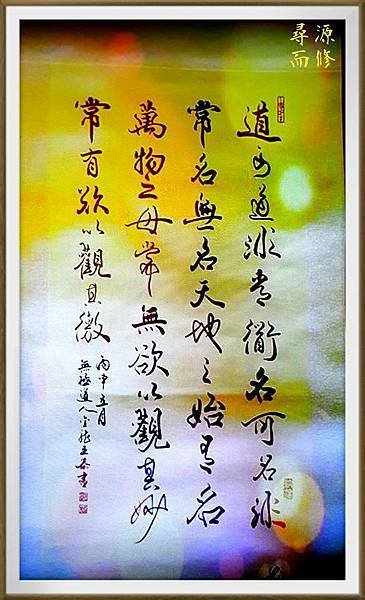 尋源
而修
道可道非常衜名可名非
常名無名天地之始有名
萬物之母常無欲以觀其妙
常有欲以觀其徼
丙申五月
無極道人書